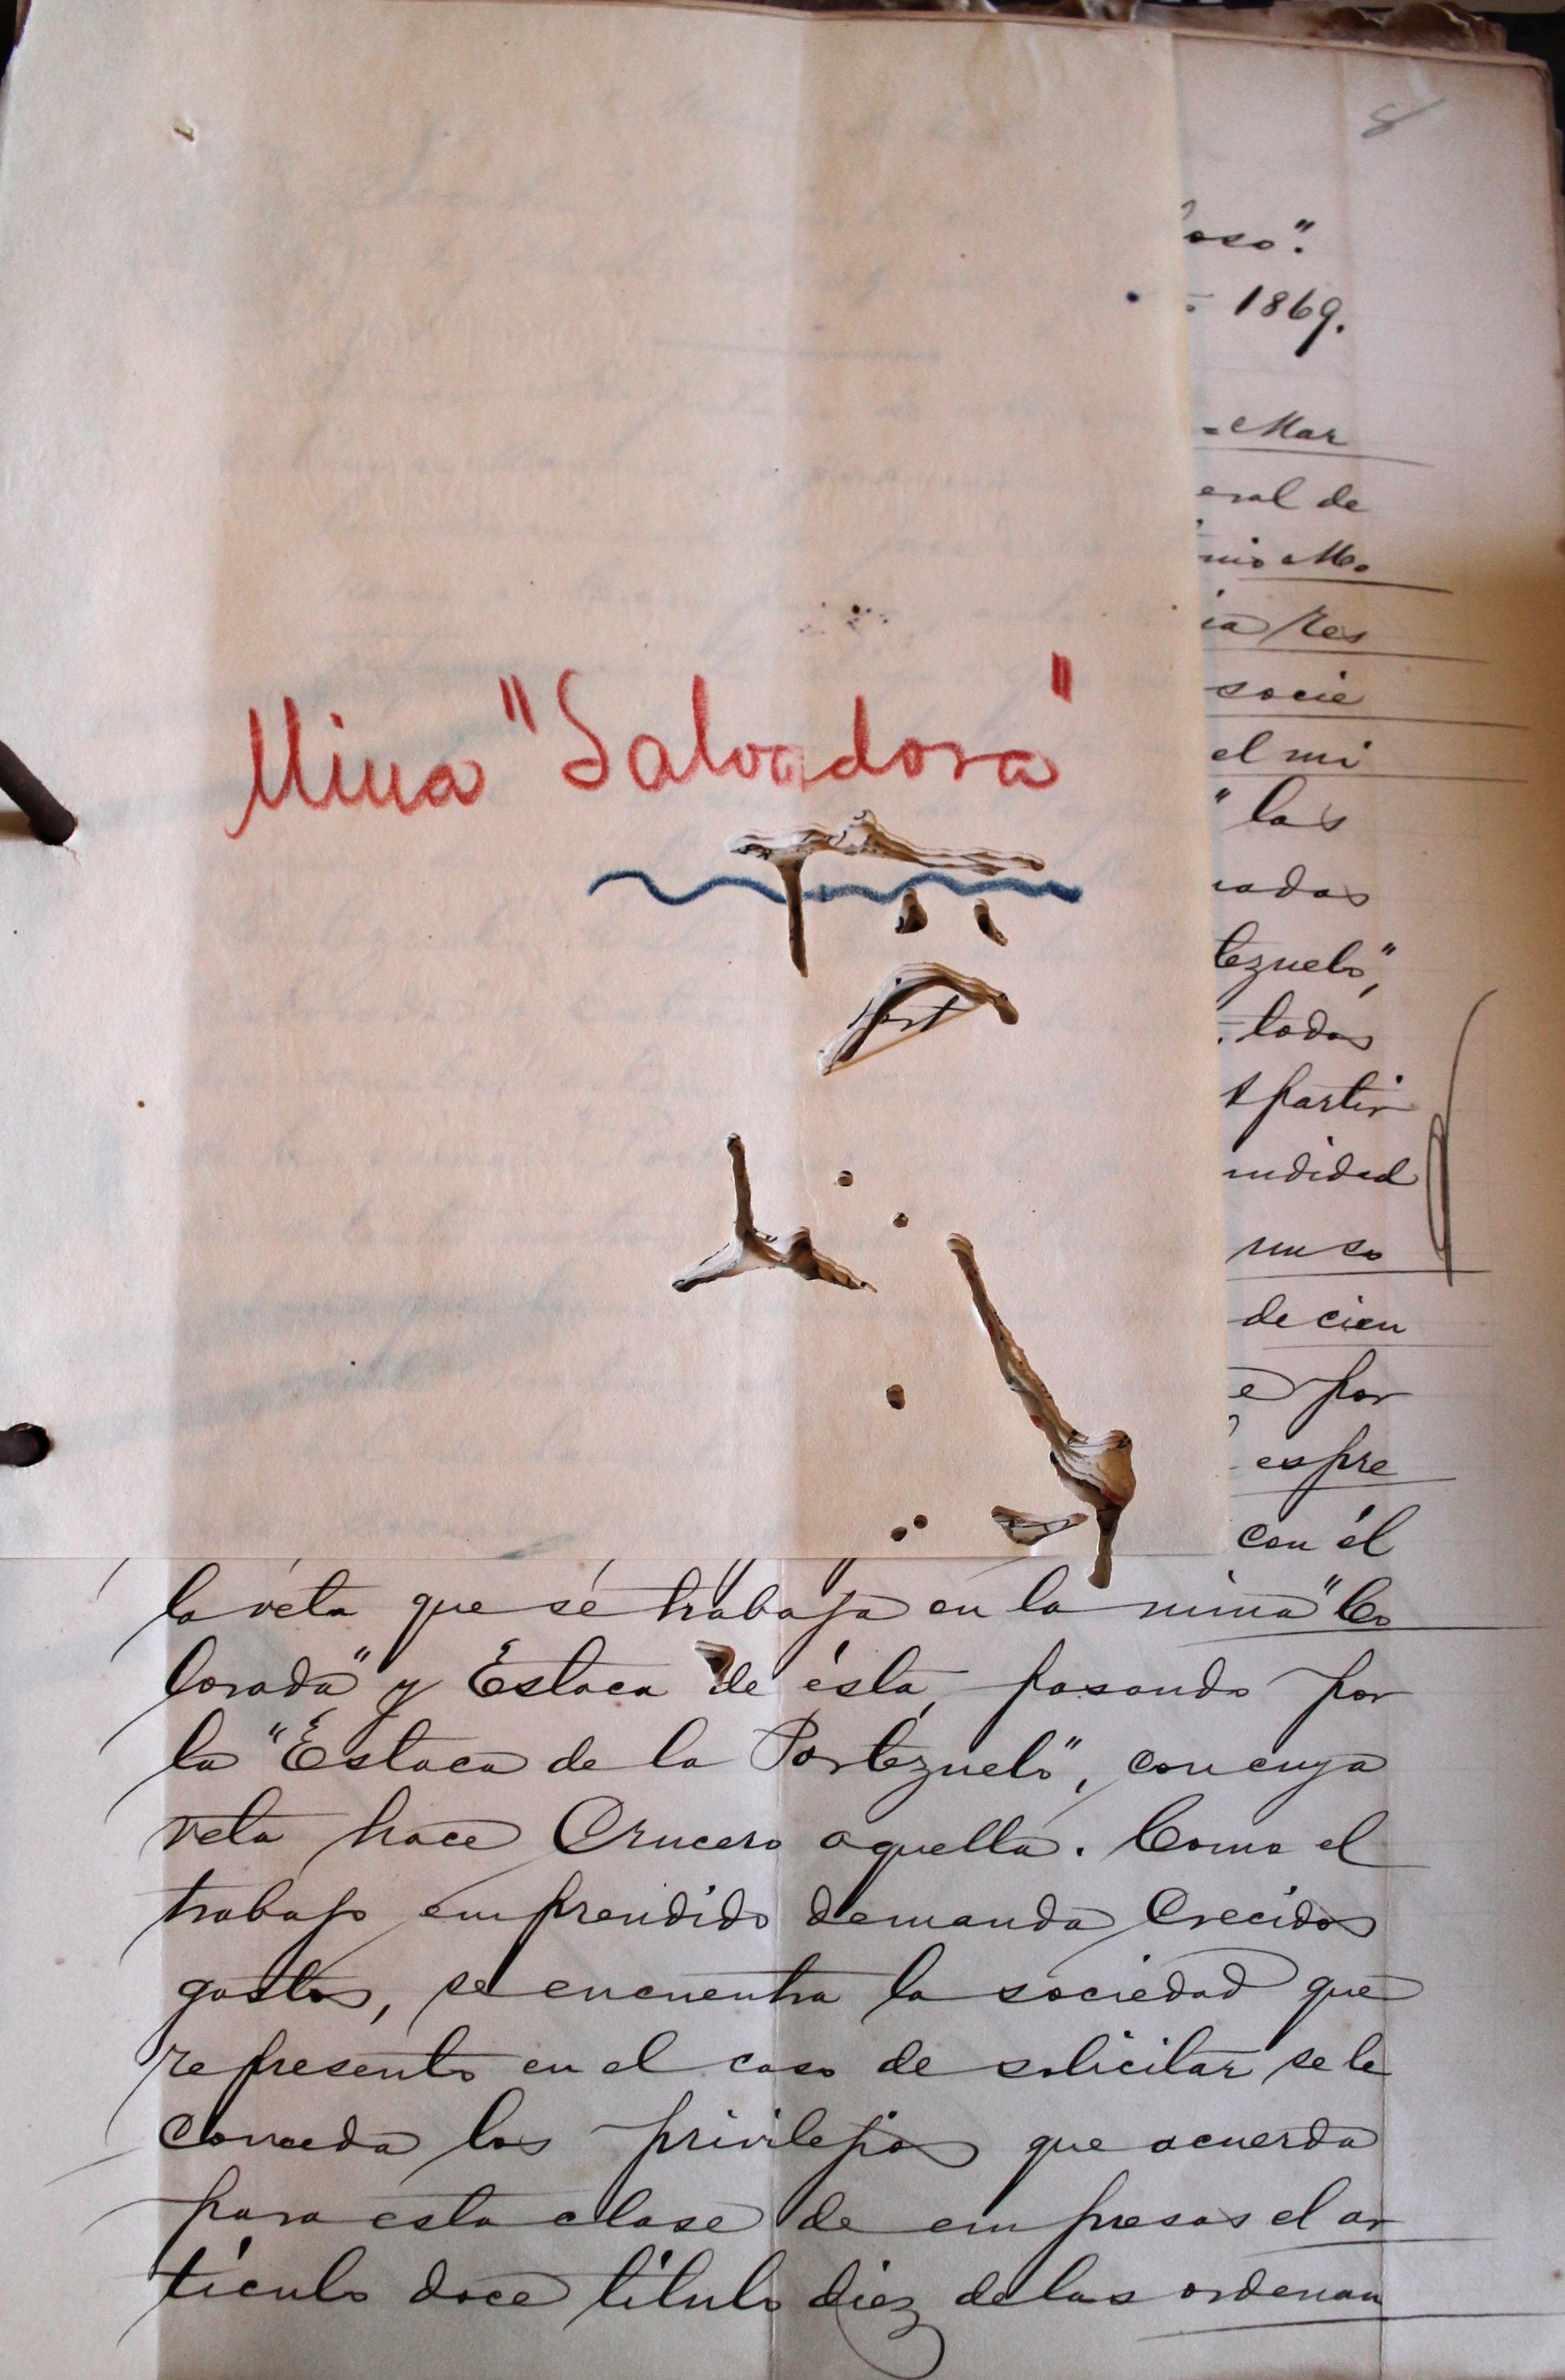 8
oso".
1869.
Mar
eral de
nio Mo
ia res
socie
el mi
" las
nadas
tezuelo",
todas
partir
undidad
un so
de cien
e por
espre
con él
Mina "Salvadora"
la veta que se trabaja en la mina "Co
lorada" y Estaca de ésta, pasando por
la "Estaca de la Portezuelo", con cuya
veta hace Crucero aquella. Como el
trabajo emprendido demanda Crecidos
gastos, se encuentra la sociedad que
represento en el caso de solicitar se le
conceda los privilejios que acuerda
para esta clase de empresas el ar
tículo doce título diez de las ordenan